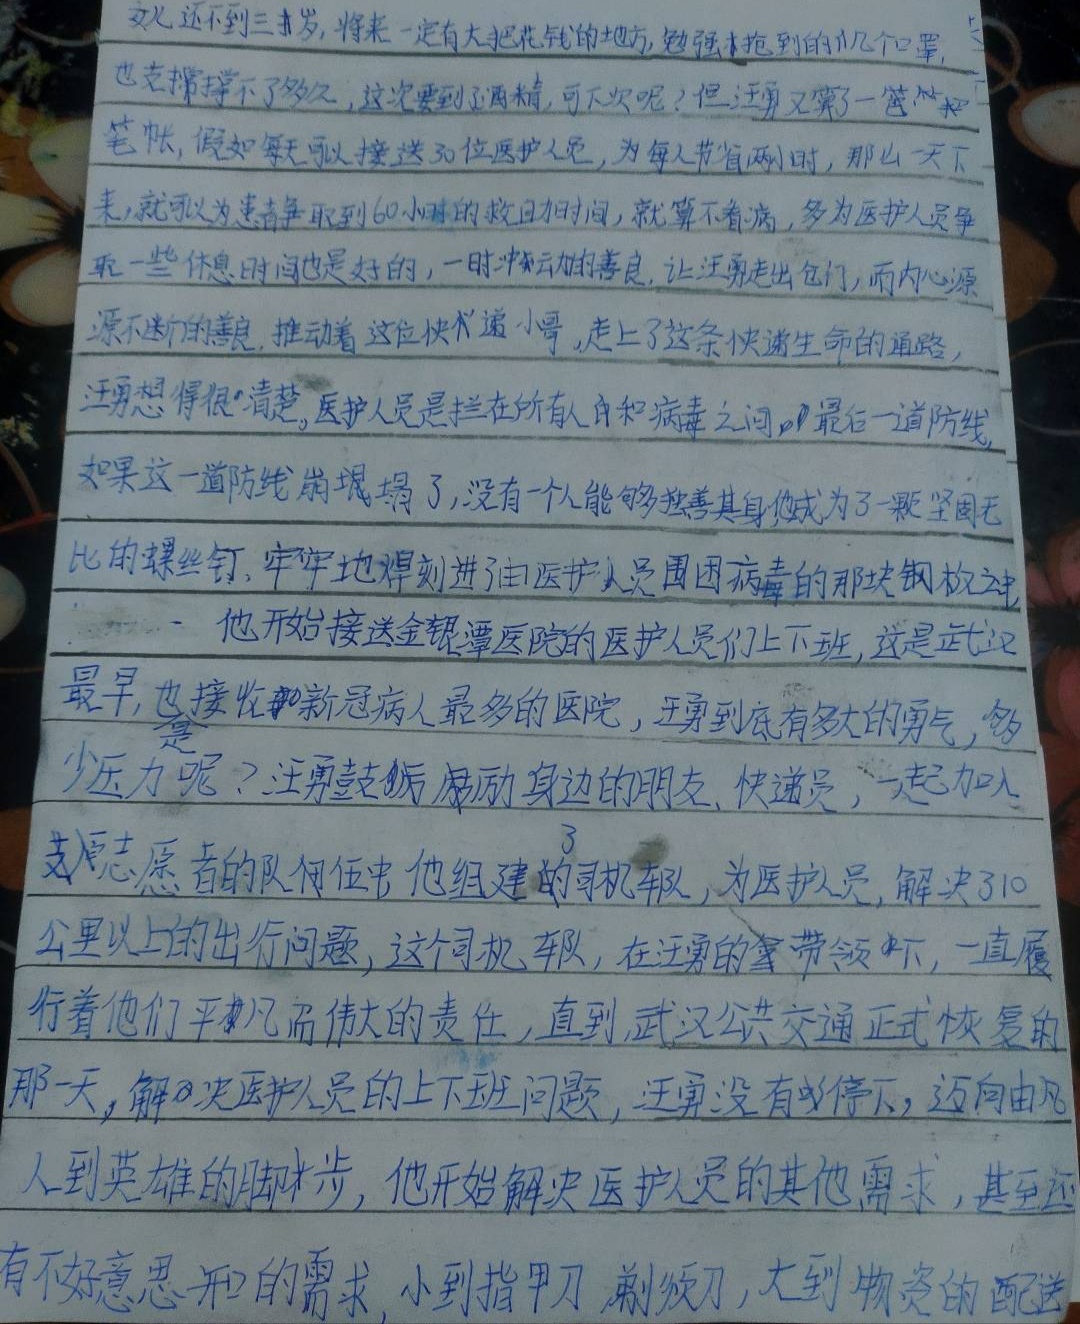 女儿还不到三岁,将来一定有大把花钱的地方,勉强抢到的几个口罩,
也支撑撑不了多久,这次要到了酒精,可下次呢?但汪勇又算了一笔
笔帐,假如每天可以接送30位医护人员,为每人节省两小时,那么一天下
来,就可以为患者争取到60小时的救治时间,就算不看病,多为医护人员争
取一些休息时间也是好的,一时冲动的善良,让汪勇走出仓门,而内心源
源不断的善良,推动着这位快递小哥,走上了这条快递生命的通路,
汪勇想得很清楚,医护人员是拦在所有人和病毒之间最后一道防线,
如果这一道防线崩塌了,没有一个人能够独善其身,他成为了一颗坚固无
比的螺丝钉,牢牢地焊刻进了由医护人员围困病毒的那块钢板之中
他开始接送金银潭医院的医护人员们上下班,这是武汉
最早,也是接收新冠病人最多的医院,汪勇到底有多大的勇气,多
少压力呢?汪勇鼓励身边的朋友、快递员,一起加入
志愿者的队伍任中他组建的司机车队,为医护人员,解决了10
公里以上的出行问题,这个司机车队,在汪勇的带领下,一直履
行着他们平凡而伟大的责任,直到武汉公共交通正式恢复的
那一天,解决医护人员的上下班问题,汪勇没有停下,迈向由凡
人到英雄的脚步,他开始解决医护人员的其他需求,甚至还
有不好意思开口的需求,小到指甲刀剃须刀,大到物资的配送